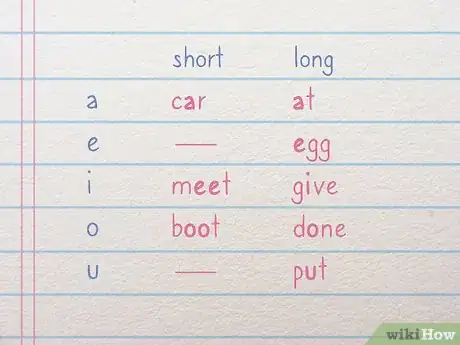 short long
a car at
e — egg
i meet give
o boot done
u — put
wikiHow